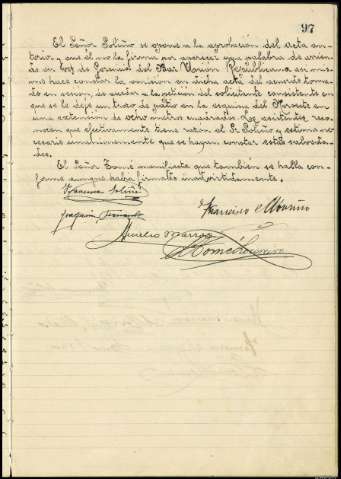 97
El Señor Soliño se opone a la aprobación del acta an-
terior, que él no la firma por aparecer una palabra de
en vez de Gremio del Mar Unión Republicana en
mo hace constar la omisión en dicha acta del acuerdo toma-
do en sesión, de acceder a la petición del solicitante consistente en
que se le deje un trozo de patio en la esquina del Noroeste en
una extensión de ocho metros cuadrados. Los asistentes reco-
nocen que efectivamente tiene razón el Sr Soliño y estiman ne-
cesario unánimemente que se hagan constar estas salveda-
des.
El Señor Tomé manifiesta que también se halla con-
forme aunque había firmado inadvertidamente.
Soliño
Francisco
Joaquín
Aurelio Barros
Tomé